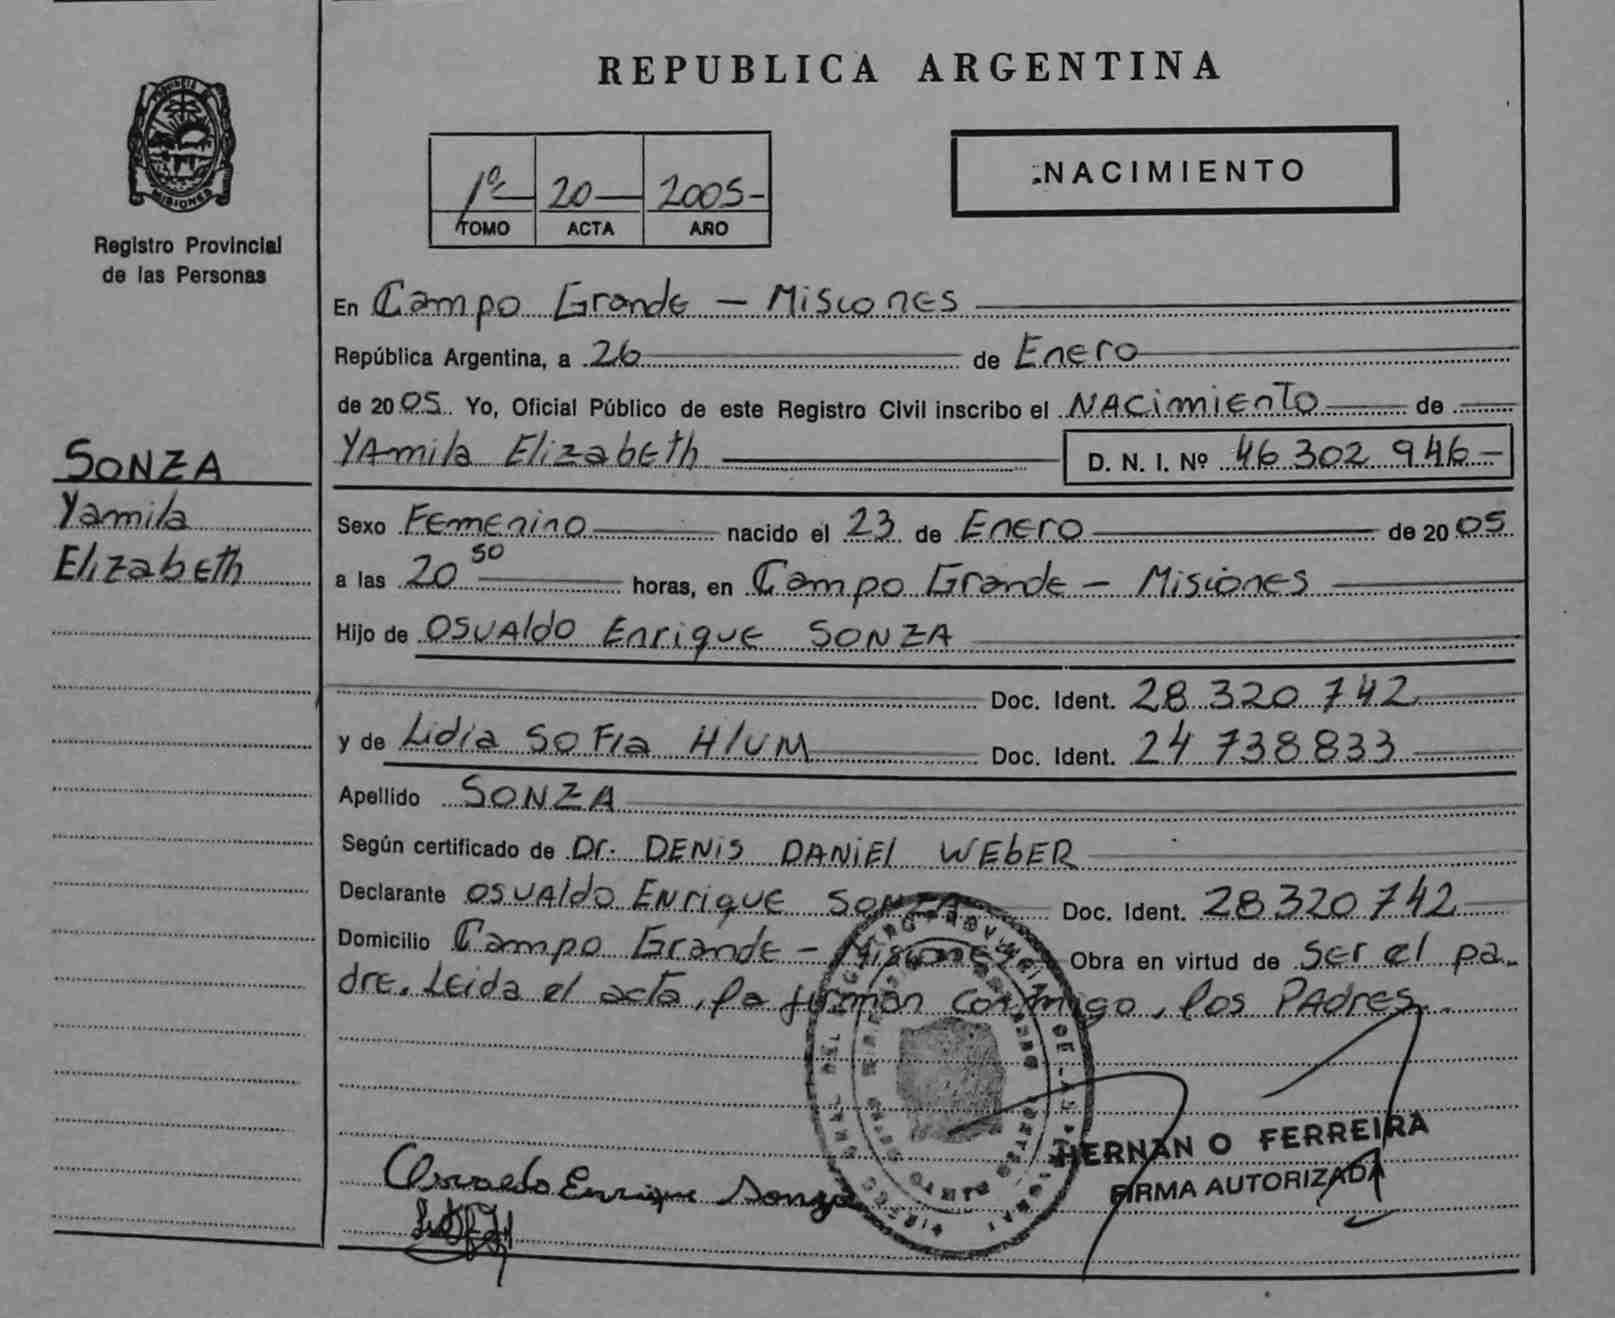 REPUBLICA ARGENTINA
PROVINCIA DE
MISIONES
Registro Provincial
de las Personas
1º 20 2005-
TOMO ACTA AÑO
NACIMIENTO
En Campo Grande - Misiones
República Argentina, a 26 de Enero
de 2005. Yo, Oficial Público de este Registro Civil inscribo el NAcimiento de
YAmila Elizabeth D. N. I. Nº 46 302 946-
SONZA
Yamila
Elizabeth
Sexo FEmenino nacido el 23 de Enero de 2005
a las 20 50 horas, en Campo Grande - Misiones
Hijo de OSVAldo Enrique SONZA
Doc. Ident. 28 320 742
y de Lidia SOFIa HlUM Doc. Ident. 24 738 833
Apellido SONZA
Según certificado de Dr. DENIS DANIEl WEbER
Declarante OSVAldo ENrique SONZA Doc. Ident. 28 320 742
Domicilio Campo Grande - Misiones Obra en virtud de ser el pa-
dre. Leida el acta, la firman conmigo, los PAdres.
HERNAN O FERREIRA
FIRMA AUTORIZADA
Osvaldo Enrique Sonza